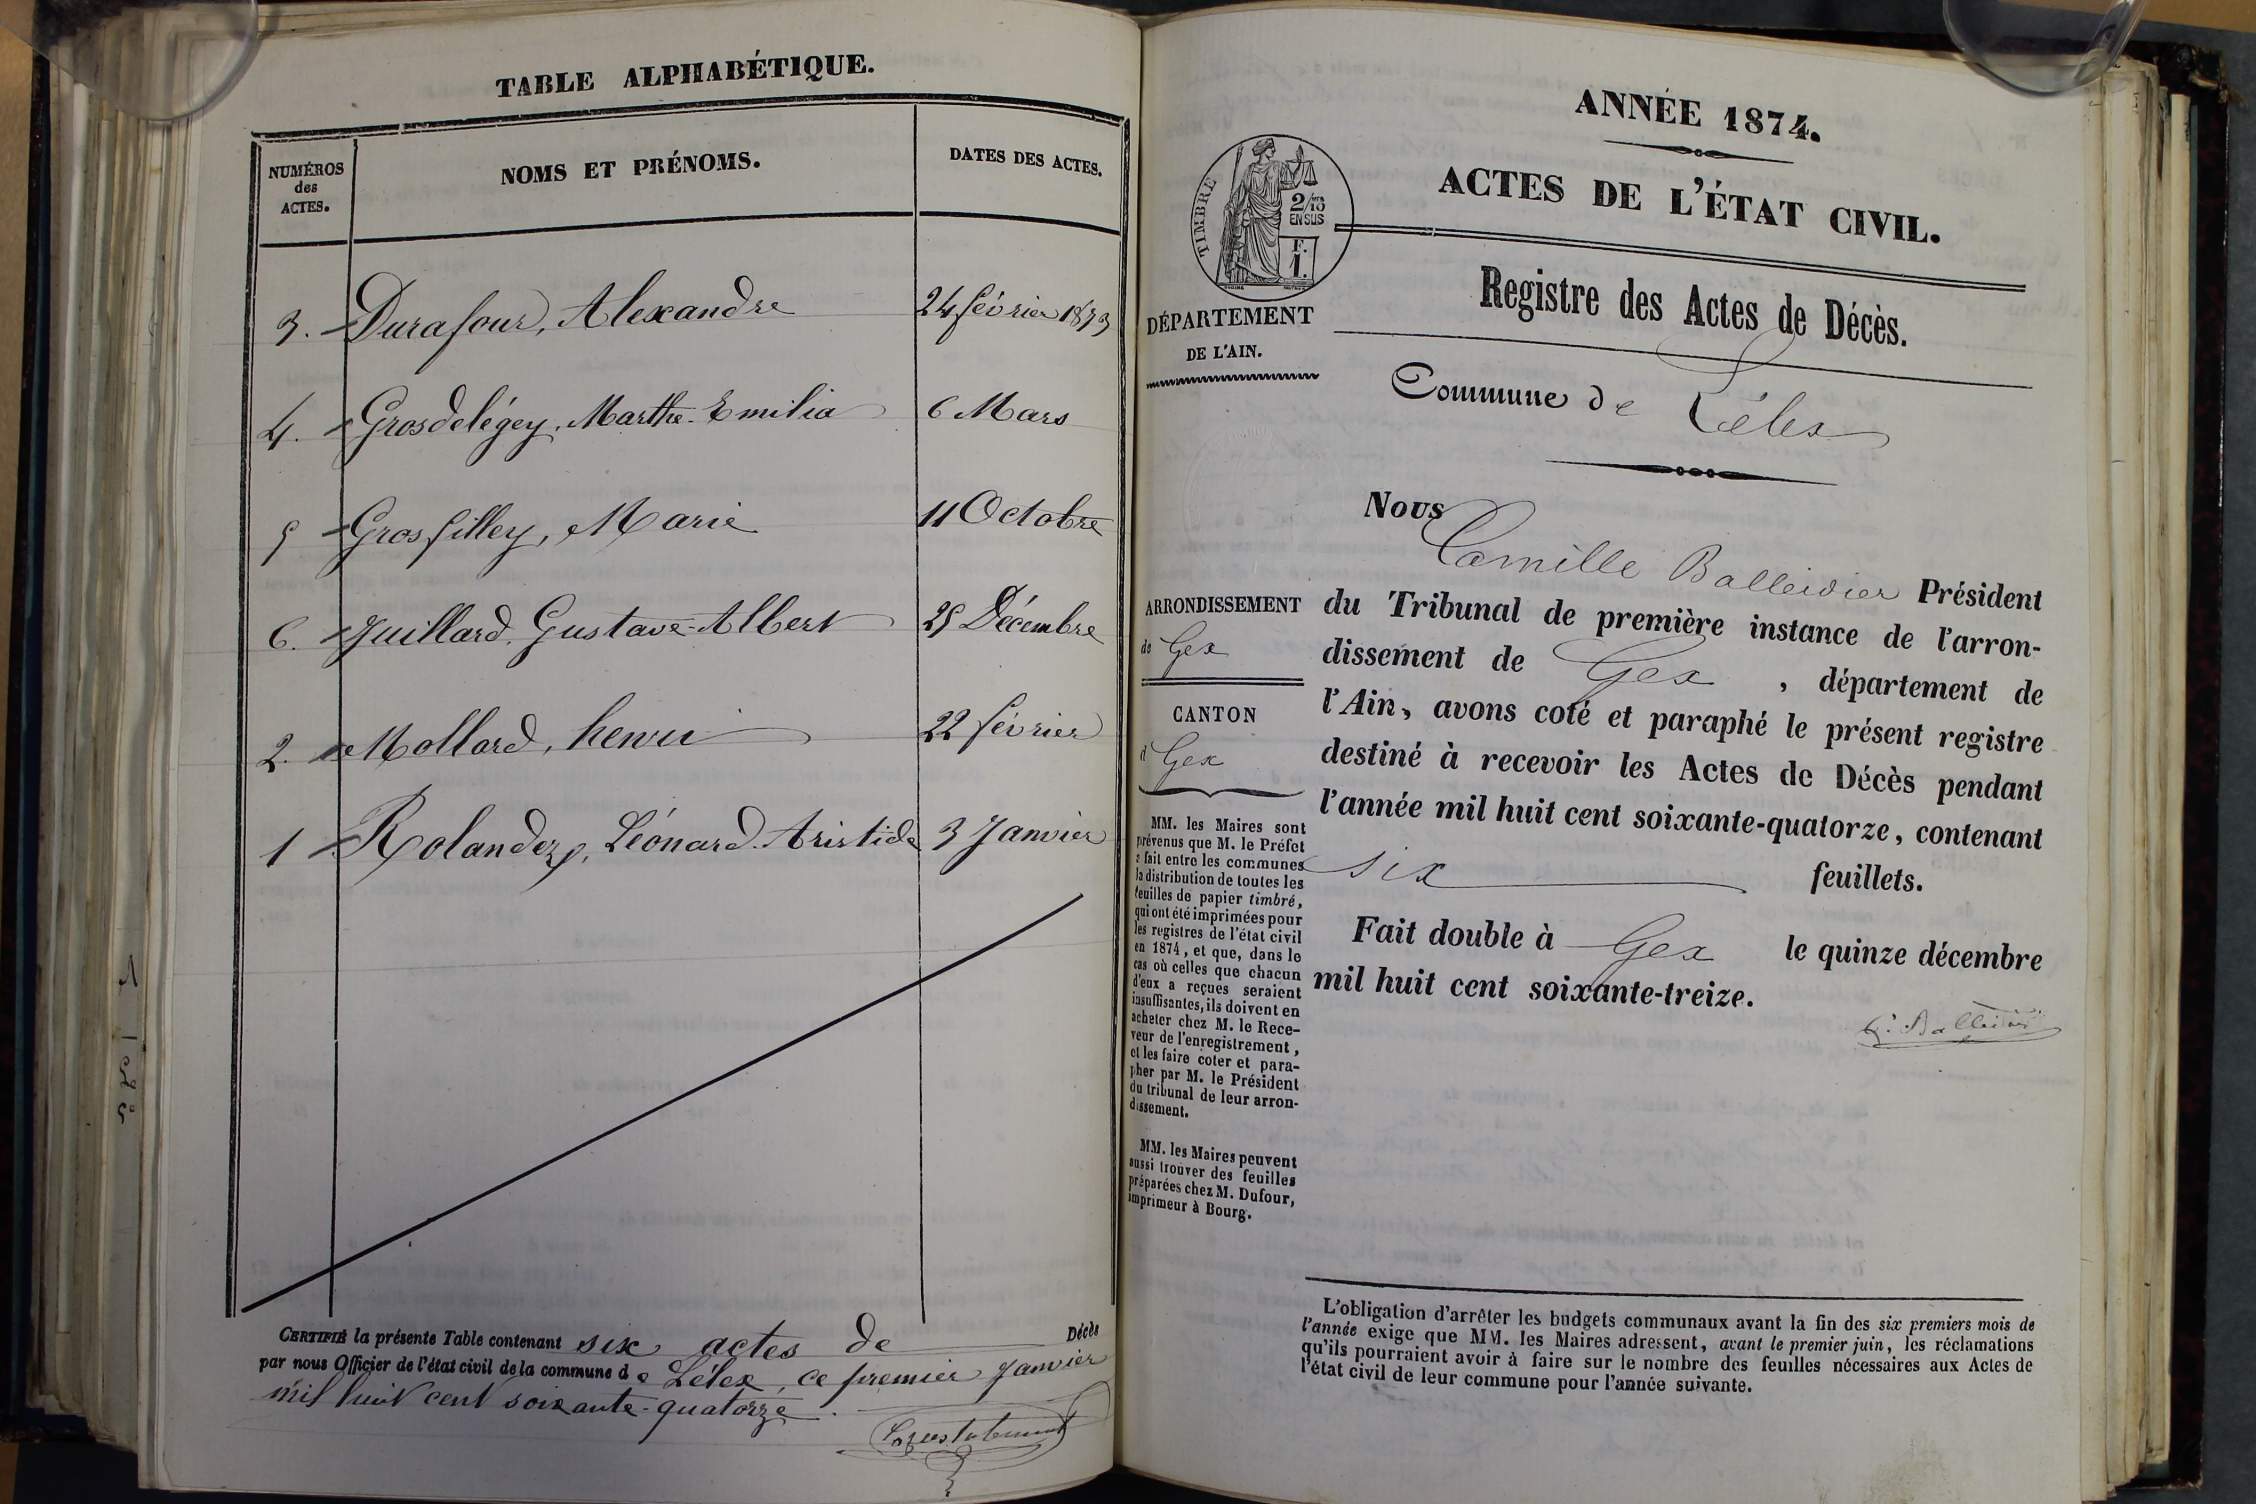 TABLE ALPHABÉTIQUE.
NUMÉROS
des
ACTES.
NOMS ET PRÉNOMS.
DATES DES ACTES.
3. Durafour, Alexandre 24 février 1873
4. Grosdelégey, Marthe-Emilia 6 Mars
5 Grosfilley, Marie 11 Octobre
6. Juillard, Gustave-Albert 25 Décembre
2. Mollard, henri 22 février
1 Rolandez, Léonard-Aristide 3 Janvier
CERTIFIÉ la présente Table contenant six actes de Décès
par nous Officier de l'état civil de la commune de Lélex, ce premier Janvier
mil huit cent soixante-quatorze.
ANNÉE 1874.
ACTES DE L'ÉTAT CIVIL.
TIMBRE
2/10
EN SUS
F.
1.
DÉPARTEMENT
DE L'AIN.
Registre des Actes de Décès.
Commune de Lélex
ARRONDISSEMENT
de Gex
CANTON
d Gex
MM. les Maires sont
prévenus que M. le Préfet
a fait entre les communes
la distribution de toutes les
feuilles de papier timbré,
qui ont été imprimées pour
les registres de l'état civil
en 1874, et que, dans le
cas où celles que chacun
d'eux a reçues seraient
insuffisantes, ils doivent en
acheter chez M. le Rece-
veur de l'enregistrement,
et les faire coter et para-
pher par M. le Président
du tribunal de leur arron-
dissement.
MM. les Maires peuvent
aussi trouver des feuilles
préparées chez M. Dufour,
imprimeur à Bourg.
Nous
Camille Balleidier Président
du Tribunal de première instance de l'arron-
dissement de Gex, département de
l'Ain, avons coté et paraphé le présent registre
destiné à recevoir les Actes de Décès pendant
l'année mil huit cent soixante-quatorze, contenant
six feuillets.
Fait double à Gex le quinze décembre
mil huit cent soixante-treize.
C. Balleidier
L'obligation d'arrêter les budgets communaux avant la fin des six premiers mois de
l'année exige que MM. les Maires adressent, avant le premier juin, les réclamations
qu'ils pourraient avoir à faire sur le nombre des feuilles nécessaires aux Actes de
l'état civil de leur commune pour l'année suivante.